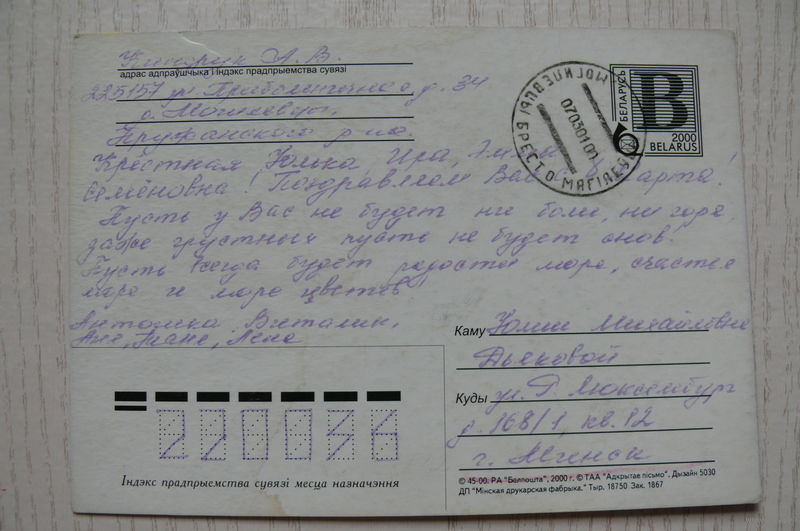 А. В.
адрас адпраўшчыка і індэкс прадпрыемства сувязі
225157 ул. д. 34
Пружанского р-на.
Крёстная, Юлька, Ира,
Семёновна! Поздравляем Вас с 8 Марта!
Пусть у Вас не будет ни боли, ни горя,
даже грустных пусть не будет снов!
Пусть всегда будет радостей море, счастья
море и море цветов!
Антошка, Виталик,
Аня, Таня, Лена
МОГИЛЕВЦЫ БРЕСТ.О МАГIЛЕЎЦЫ
БЕЛАРУСЬ
B
2000
BELARUS
Каму Юлии Михайловне
Дьяковой
Куды ул. Р. Люксембург
д. 168/1, кв. 12
г. Минск
220036
Індэкс прадпрыемства сувязі месца назначэння
© 45-00. РА "Белпошта", 2000 г. © ТАА "Адкрытае пісьмо". Дызайн 5030
ДП "Мінская друкарская фабрыка." Тыр. 18750 Зак. 1867